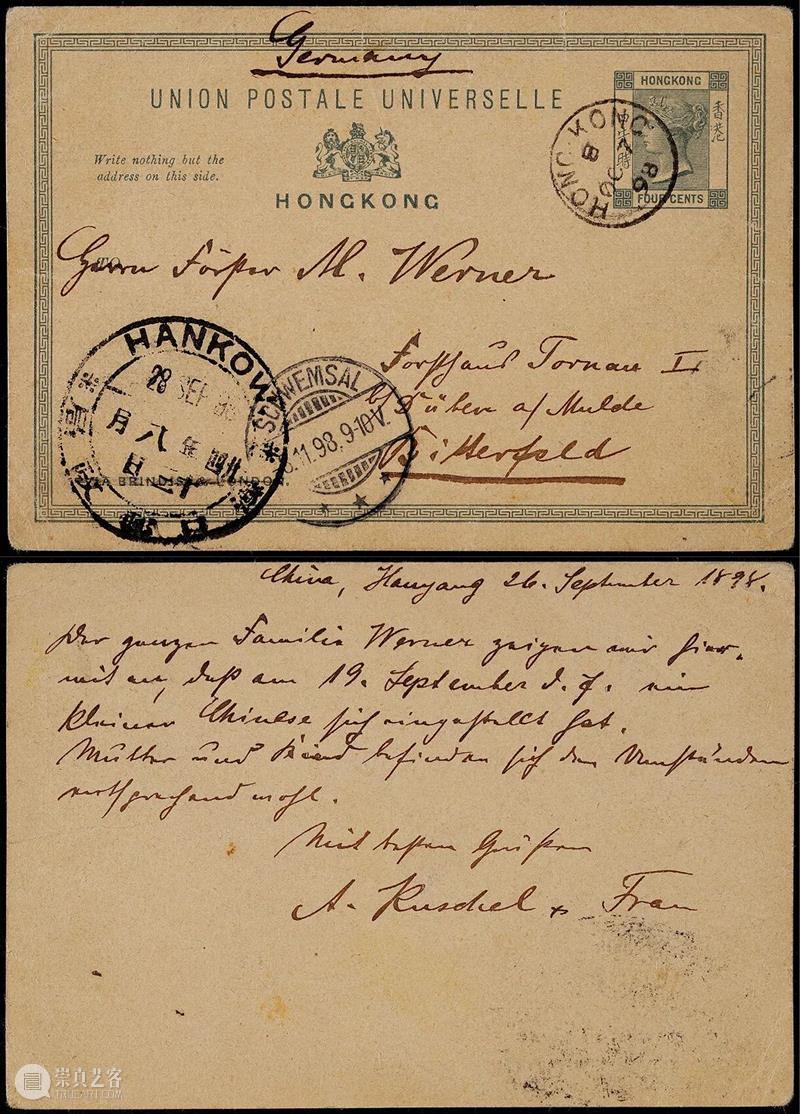 Germany
UNION POSTALE UNIVERSELLE
Write nothing but the
address on this side.
HONGKONG
HONGKONG
香港
FOUR CENTS
HONG-KONG
B
OC 7
98
TO
Herrn Förster M. Werner
Forsthaus Tornau I
b/ Düben a/ Mulde
Bitterfeld
HANKOW
28 SEP 98
年八月
日
VIA BRINDISI & LONDON.
SCHWEMSAL
.11.98. 9-10V.
China, Hanyang 26. September 1898.
Der ganzen Familie Werner zeigen wir hier-
mit an, daß am 19. September d. J. ein
kleiner Chinese sich eingestellt hat.
Mutter und Kind befinden sich den Umständen
entsprechend wohl.
Mit besten Grüßen
A. Kuschel + Frau
崇真艺客